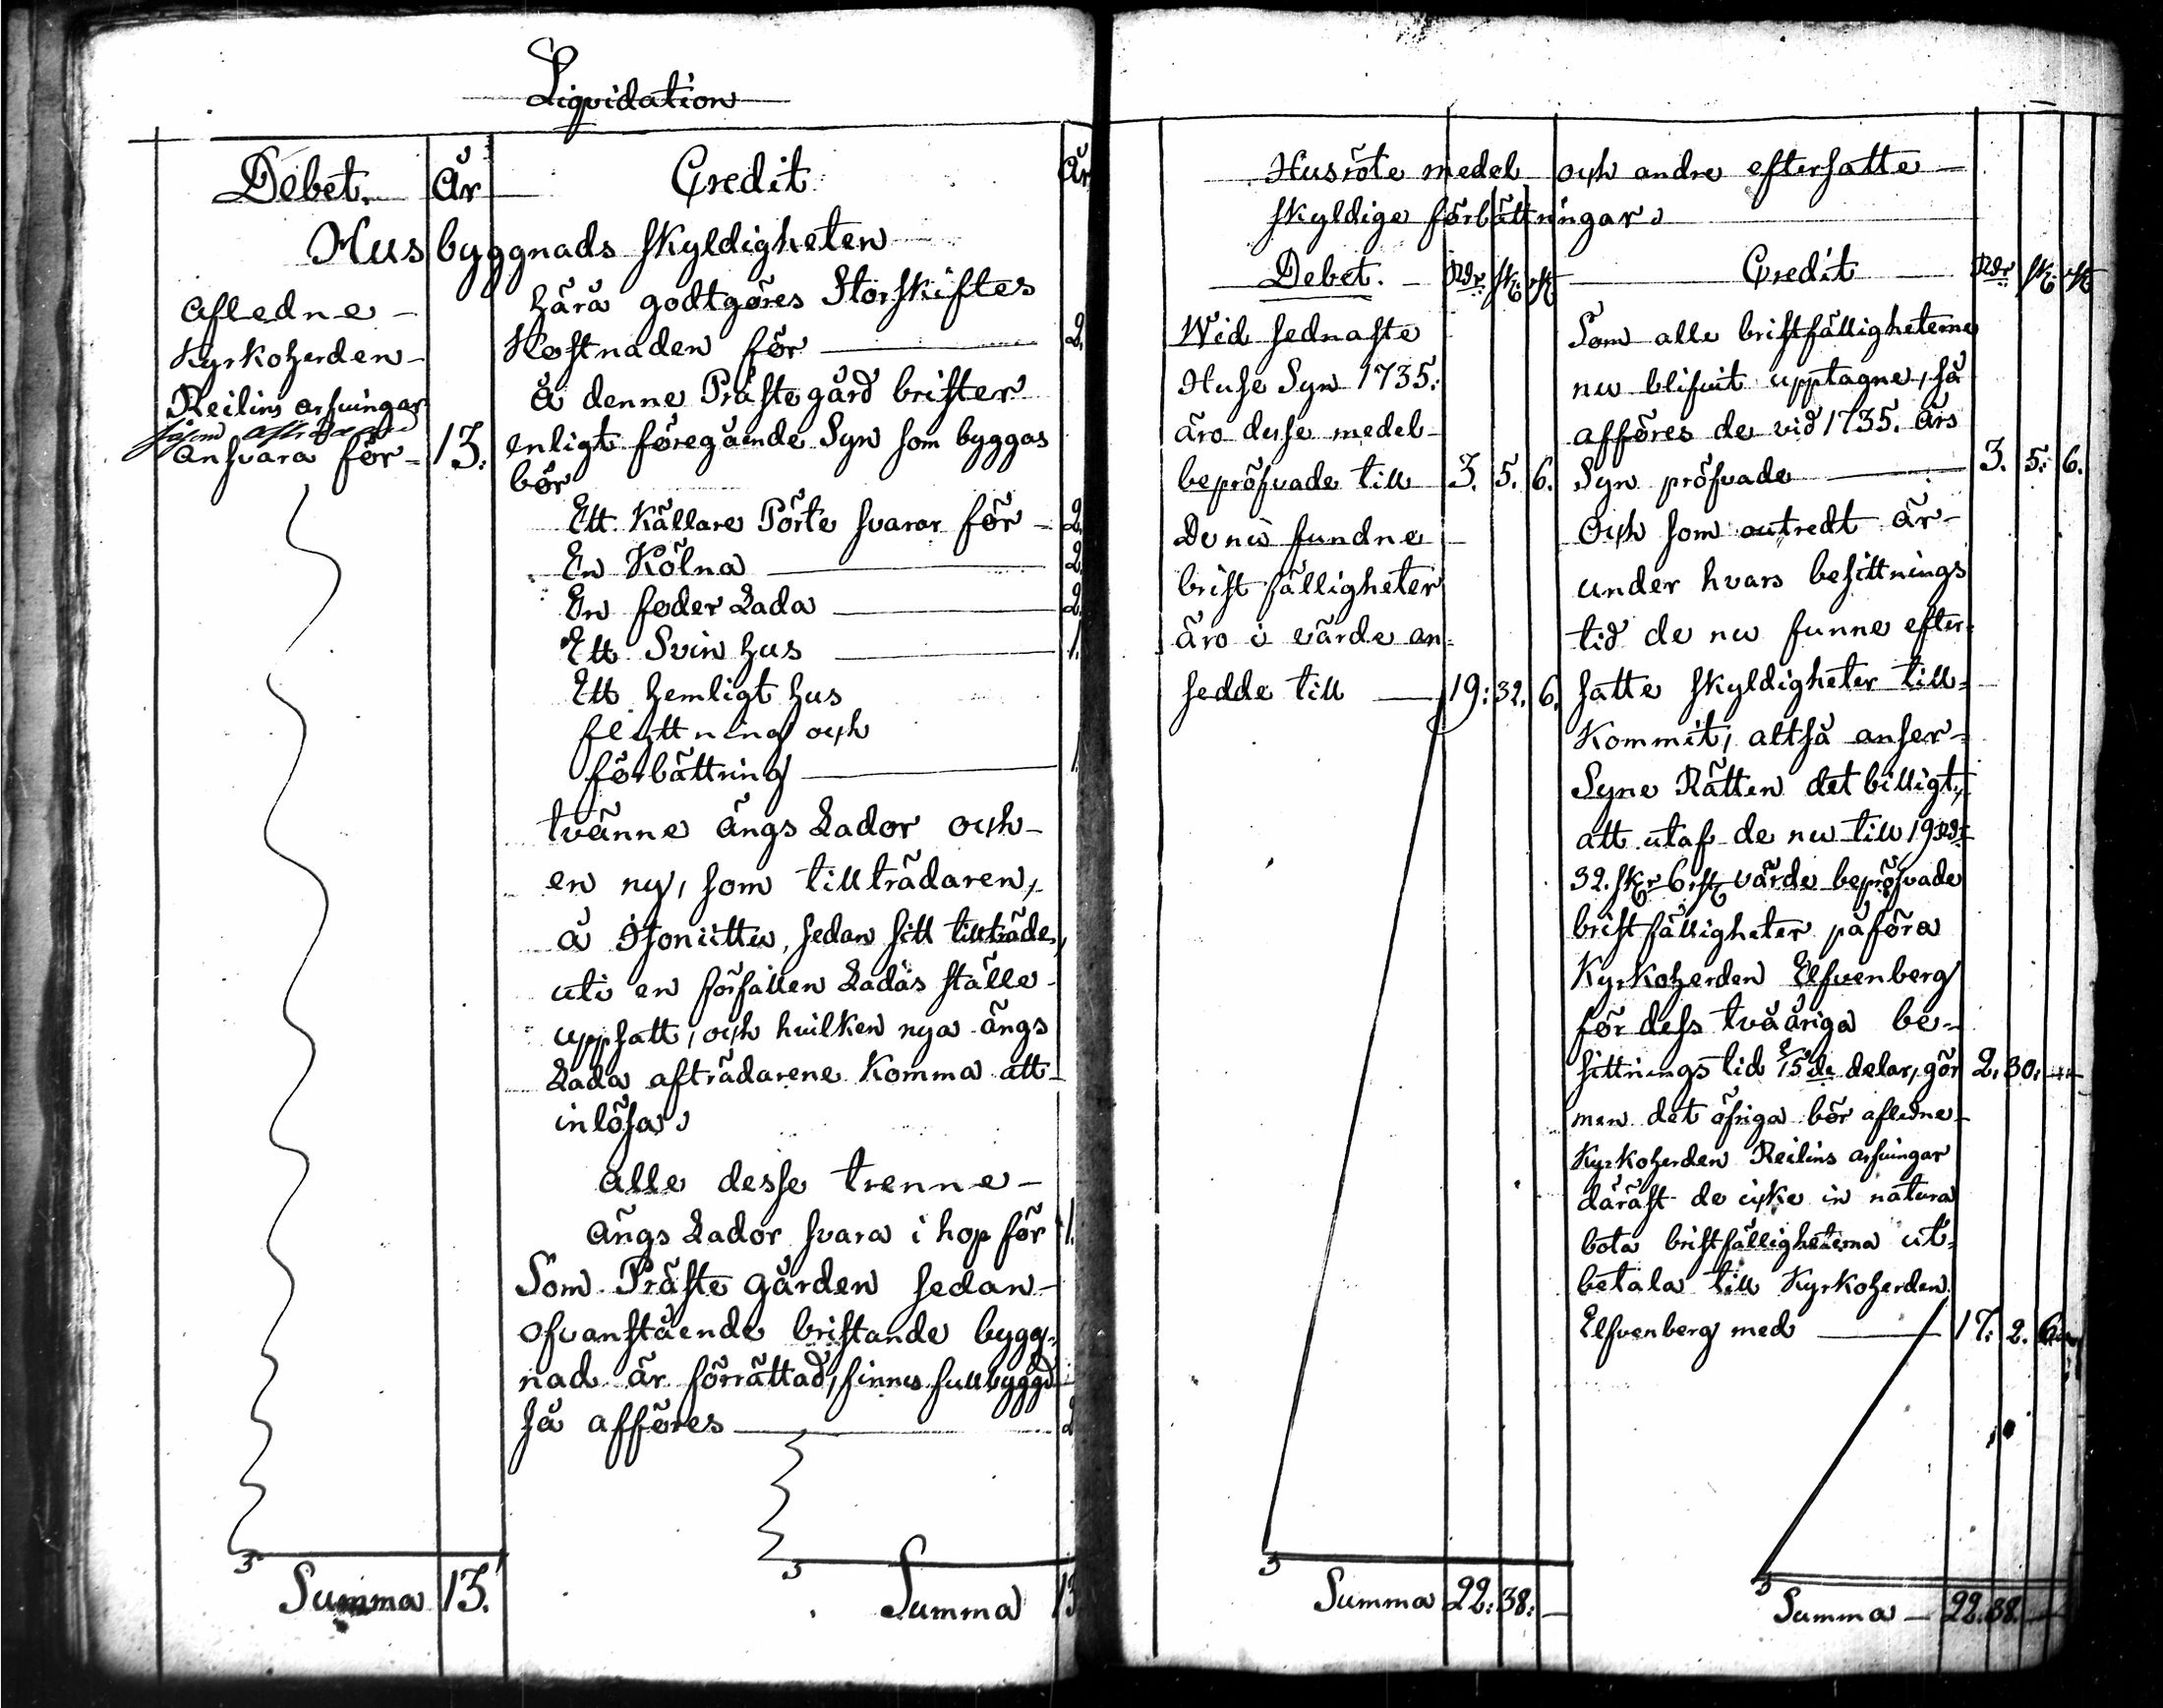 Liqvidation
Debet. År Credit År
Husbyggnads skyldigheten
Afledne
Kyrkoherden
Reilins arfvingar
såsom
ansvara för 13.
härå godtgöres Storskiftes
Kostnaden för 2.
å denne Präste gård brister
enligt föregående Syn som byggas
bör
Ett Källare Pörte svarar för 2.
En Kölna 2.
En foder Lada 2.
Ett Svin hus 1.
Ett hemligt hus
flyttning och
förbättring 1.
tvänne ängs Lador och
en ny, som tillträdaren,
å sedan sitt tillträde,
uti en förfallen Ladas ställe
uppsatt, och hvilken nya ängs
Lada afträdarene komma att
inlösa.
alle desse trenne
ängs Lador svara i hop för 1.
Som Präste gården sedan
ofvanstående bristande bygg-
nad är förrättad, finnes fullbyggd
så afföres 2
Summa 13.
Summa 13
Husröte medel och andre eftersatte
skyldige förbättringar.
Debet. Rdr sk. rst
Wid sednaste
Huse Syn 1735.
äro desse medel
bepröfvade till 3. 5. 6.
De nu fundne
bristfälligheter
äro i värde an-
sedde till 19: 32. 6.
Summa 22: 38: —
Credit Rdr sk. rst
Som alle bristfälligheterne
nu blifvit upptagne, så
afföres de vid 1735. Års
Syn pröfvade 3. 5: 6.
Och som outredt är
under hvars besittnings
tid de nu funne efter-
satte skyldigheter till-
kommit, altså anser
Syne Rätten det billigt,
att utaf de nu till 19 Rdr
32. skr 6 rst värde bepröfvade
bristfälligheter påföra
Kyrkoherden Elfvenberg
för dess två åriga be-
sittnings tid 2/15de delar, gör 2. 30. —
men det öfriga bör afledne
Kyrkoherden Reilins arfvingar
däräst de icke in natura
bota bristfälligheterna ut-
betala till Kyrkoherden
Elfvenberg med 17: 2. 6
Summa 22. 38. —